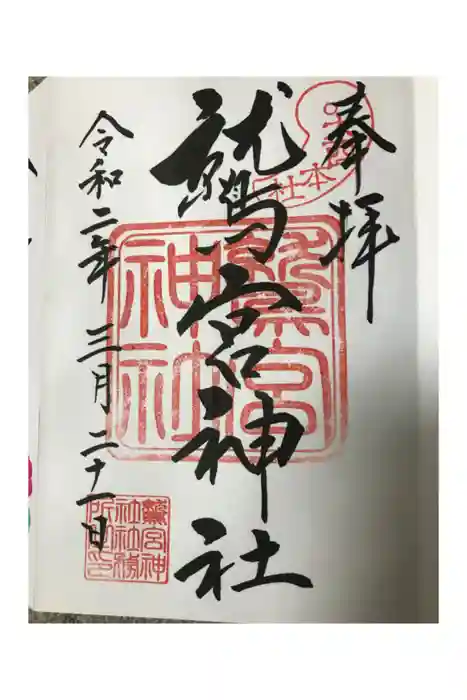 奉拝
本社
鷲宮神社
鷲宮神社
令和二年三月二十一日
鷲宮神社社務所印